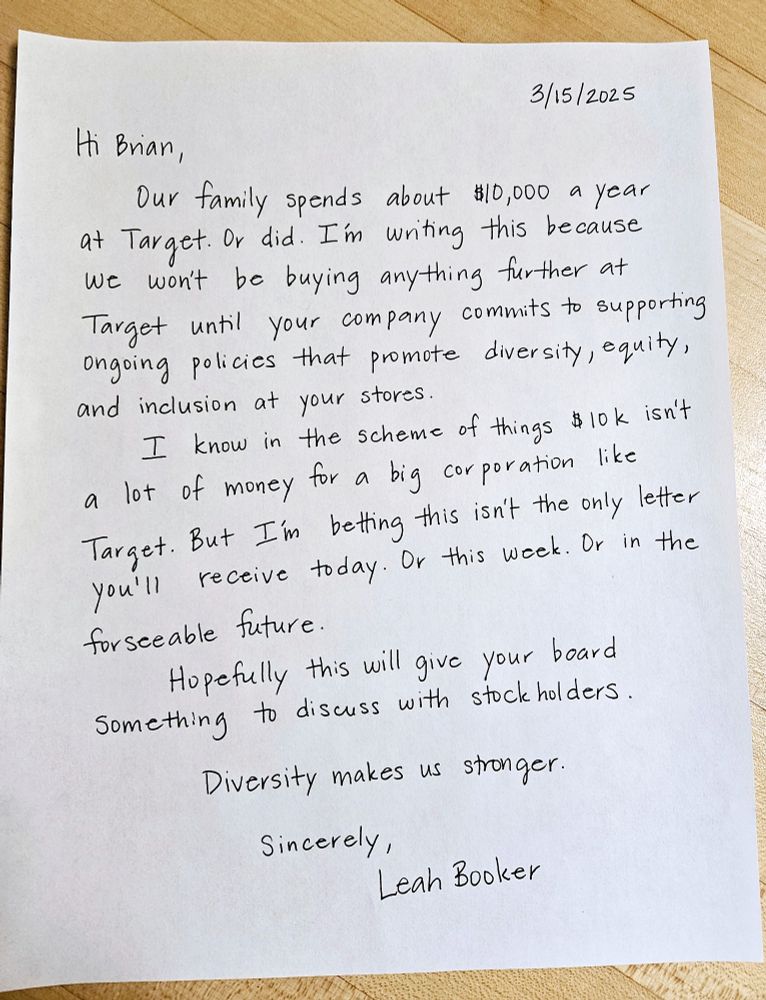 3/15/2025
Hi Brian,
Our family spends about $10,000 a year
at Target. Or did. I'm writing this because
we won't be buying anything further at
Target until your company commits to supporting
ongoing policies that promote diversity, equity,
and inclusion at your stores.
I know in the scheme of things $10k isn't
a lot of money for a big corporation like
Target. But I'm betting this isn't the only letter
you'll receive today. Or this week. Or in the
forseeable future.
Hopefully this will give your board
something to discuss with stockholders.
Diversity makes us stronger.
Sincerely,
Leah Booker